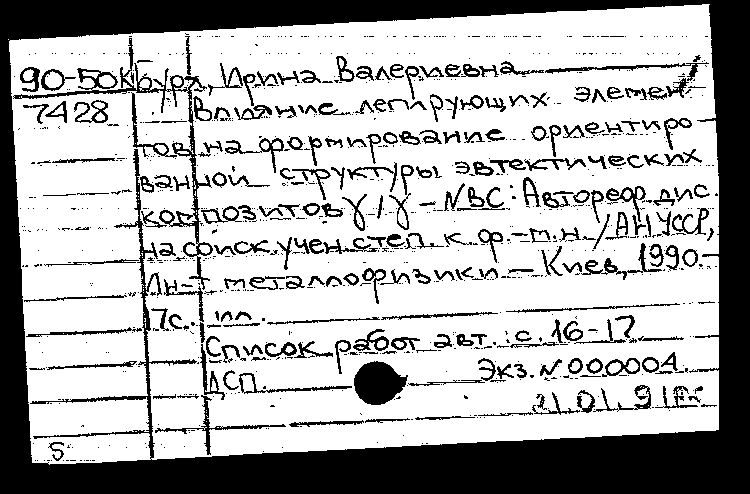 90-50К Буря, Ирина Валериевна
7428 Влияние легирующих элемен-
тов на формирование ориентиро-
ванной структуры эвтектических
композитов γ/γ-NBC: Автореф. дис.
на соиск. учен. степ. к. ф.-м.н. / АН УССР,
Ин-т металлофизики - Киев, 1990.-
17с. ил.
Список работ авт.: с. 16-17
ДСП. Экз. N 000004.
21.01.91
5